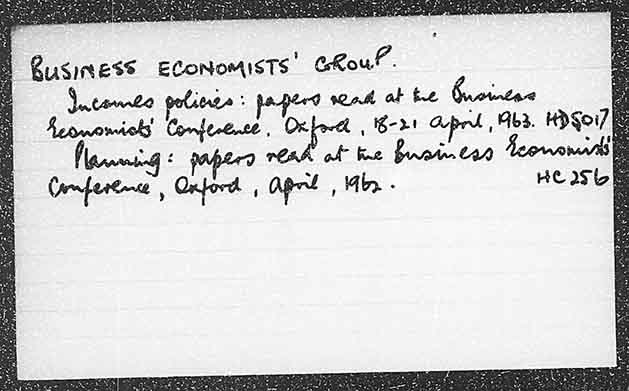 BUSINESS ECONOMISTS' GROUP.
Incomes policies: papers read at the Business
Economists' Conference, Oxford, 18-21 April, 1963. HD5017
Planning: papers read at the Business Economists'
Conference, Oxford, April, 1962. HC256